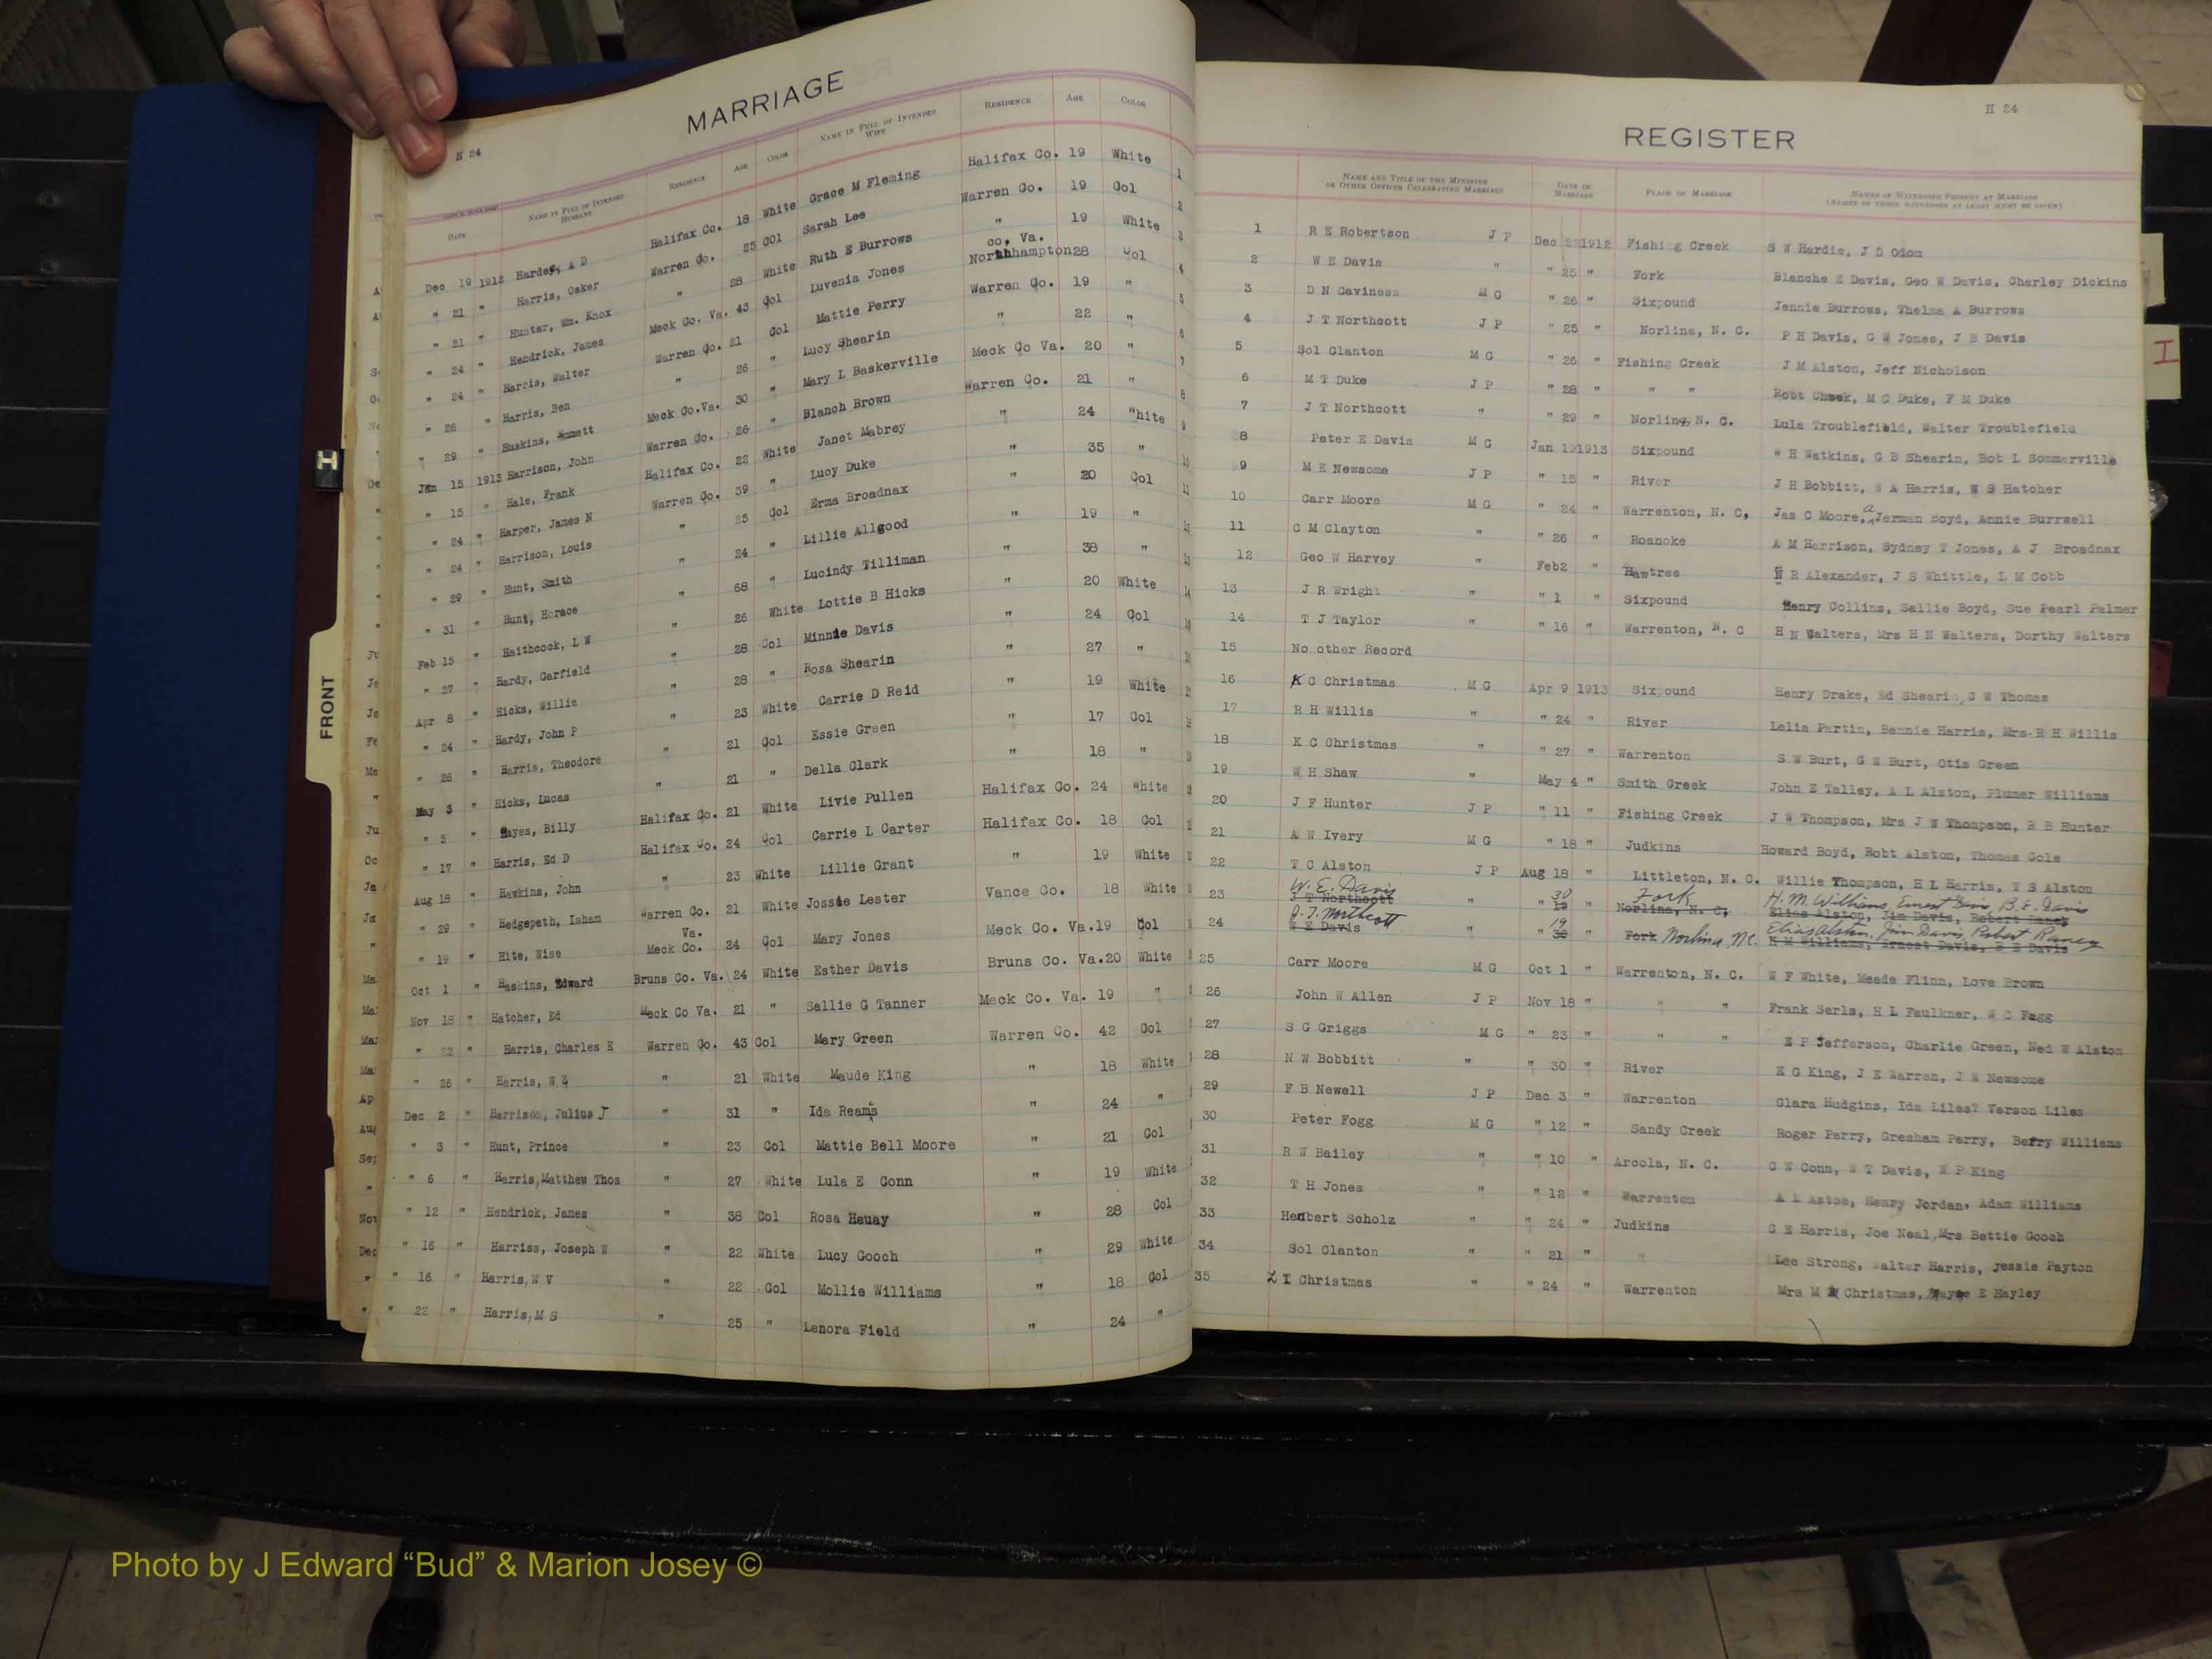 MARRIAGE
H 24
DATE NAME IN FULL OF INTENDED HUSBANT RESIDENCE AGE COLOR NAME IN FULL OF INTENDED WIFE RESIDENCE AGE COLOR
Dec 19 1912 Harde, A D Halifax Co. 18 White Grace M Fleming Halifax Co. 19 White 1
" 21 " Harris, Osker Warren Co. 25 Col Sarah Lee Warren Co. 19 Col 2
" 21 " Hunter, Wm. Knox " 28 White Ruth E Burrows " 19 White 3
" 24 " Hendrick, James Meck Co. Va. 43 Col Luvenia Jones Northhampton co, Va. 28 Col 4
" 24 " Harris, Walter Warren Co. 21 Col Mattie Perry Warren Co. 19 " 5
" 28 " Harris, Ben " 26 " Lucy Shearin " 22 " 6
" 29 " Huskins, Emmett Meck Co.Va. 30 " Mary L Baskerville Meck Co Va. 20 " 7
Jan 15 1913 Harrison, John Warren Co. 26 " Blanch Brown Warren Co. 21 " 8
" 15 " Hale, Frank Halifax Co. 22 White Janet Mabrey " 24 "hite 9
" 24 " Harper, James N Warren Co. 39 " Lucy Duke " 35 " 10
" 24 " Harrison, Louis " 25 Col Erma Broadnax " 20 Col 11
" 29 " Hunt, Smith " 24 " Lillie Allgood " 19 "
" 31 " Hunt, Horace " 68 " Lucindy Tilliman " 38 "
Feb 15 " Haithcock, L W " 26 White Lottie B Hicks " 20 White
" 27 " Hardy, Garfield " 28 Col Minnie Davis " 24 Col
Apr 8 " Hicks, Willie " 28 " Rosa Shearin " 27 "
" 24 " Hardy, John P " 23 White Carrie D Reid " 19 White
" 26 " Harris, Theodore " 21 Col Essie Green " 17 Col
May 3 " Hicks, Lucas " 21 " Della Clark " 18 "
" 5 " Hayes, Billy Halifax Co. 21 White Livie Pullen Halifax Co. 24 White
" 17 " Harris, Ed D Halifax Co. 24 Col Carrie L Carter Halifax Co. 18 Col
Aug 18 " Hawkins, John " 23 White Lillie Grant " 19 White
" 29 " Hedgepeth, Isham Warren Co. 21 White Jossie Lester Vance Co. 18 White
" 19 " Hite, Wise Va. Meck Co. 24 Col Mary Jones Meck Co. Va. 19 Col
Oct 1 " Haskins, Edward Bruns Co. Va. 24 White Esther Davis Bruns Co. Va. 20 White
Nov 18 " Hatcher, Ed Meck Co Va. 21 " Sallie G Tanner Meck Co. Va. 19 "
" 22 " Harris, Charles E Warren Co. 43 Col Mary Green Warren Co. 42 Col
" 26 " Harris, W " 21 White Maude King " 18 White
Dec 2 " Harrison, Julius J " 31 " Ida Reams " 24 "
" 3 " Hunt, Prince " 23 Col Mattie Bell Moore " 21 Col
" 6 " Harris, Matthew Thos " 27 White Lula E Conn " 19 White
" 12 " Hendrick, James " 38 Col Rosa Heuay " 28 Col
" 16 " Harriss, Joseph W " 22 White Lucy Gooch " 29 White
" 16 " Harris, W V " 22 Col Mollie Williams " 18 Col
" 22 " Harris, M S " 25 " Lenora Field " 24 "
H 24
REGISTER
NAME AND TITLE OF THE MINISTER OR OTHER OFFICER CELEBRATING MARRIAGE DATE OF MARRIAGE PLACE OF MARRIAGE NAMES OF WITNESSES PRESENT AT MARRIAGE
1 R E Robertson J P Dec 22 1912 Fishing Creek S W Hardie, J D Odom
2 W E Davis " " 25 " Fork Blanche E Davis, Geo W Davis, Charley Dickins
3 D N Caviness M G " 26 " Sixpound Jennie Burrows, Thelma A Burrows
4 J T Northcott J P " 25 " Norlina, N. C. P H Davis, G W Jones, J B Davis
5 Sol Clanton M G " 26 " Fishing Creek J M Alston, Jeff Nicholson
6 M T Duke J P " 28 " " " Robt Cheek, M C Duke, F M Duke
7 J T Northcott " " 29 " Norlina, N. C. Lula Troublefield, Walter Troublefield
8 Peter E Davis M G Jan 19 1913 Sixpound " H Watkins, G B Shearin, Bob L Sommerville
9 M E Newsome J P " 15 " River J H Bobbitt, W A Harris, W S Hatcher
10 Carr Moore M G " 24 " Warrenton, N. C, Jas C Moore, a Jerman Boyd, Annie Burrwell
11 C M Clayton " " 26 " Roanoke A M Harrison, Sydney T Jones, A J Broadnax
12 Geo W Harvey " Feb2 " Hawtree N R Alexander, J S Whittle, L M Cobb
13 J R Wright " " 1 " Sixpound Henry Collins, Sallie Boyd, Sue Pearl Palmer
14 T J Taylor " " 16 " Warrenton, N. C H N Walters, Mrs H N Walters, Dorthy Walters
15 No other Record
16 K C Christmas M G Apr 9 1913 Sixpound Henry Drake, Ed Shearin, C W Thomas
17 R H Willis " " 24 " River Lelia Partin, Bennie Harris, Mrs R H Willis
18 K C Christmas " " 27 " Warrenton S W Burt, G W Burt, Otis Green
19 W H Shaw " May 4 " Smith Creek John E Talley, A L Alston, Plumer Williams
20 J F Hunter J P " 11 " Fishing Creek J W Thompson, Mrs J W Thompson, R B Hunter
21 A W Ivery M G " 18 " Judkins Howard Boyd, Robt Alston, Thomas Cole
22 T C Alston J P Aug 18 " Littleton, N. C. Willie Thompson, H L Harris, T S Alston
W. E. Davis 30 Fork H. M. Williams, Ernest Davis, B. E. Davis
23 J T Northcott " " 19 " Norlina, N. C. Elias Alston, Jim Davis, Robert Raney
J. T. Northcott 19 Norlina, N.C. Elias Alston, Jim Davis, Robert Raney
24 W E Davis " " 30 " Fork H M Williams, Ernest Davis, B E Davis
25 Carr Moore M G Oct 1 " Warrenton, N. C. W F White, Meade Flinn, Love Brown
26 John W Allen J P Nov 18 " " " Frank Serls, H L Faulkner, W C Fagg
27 S G Griggs M G " 23 " " " E P Jefferson, Charlie Green, Ned W Alston
28 N W Bobbitt " " 30 " River E G King, J E Warren, J W Newsome
29 F B Newell J P Dec 3 " Warrenton Clara Hudgins, Ida Liles? Verson Liles
30 Peter Fogg M G " 12 " Sandy Creek Roger Perry, Gresham Perry, Berry Williams
31 R W Bailey " " 10 " Arcola, N. C. C W Conn, W T Davis, W P King
32 T H Jones " " 12 " Warrenton A L Aston, Henry Jordan, Adam Williams
33 Herbert Scholz " " 24 " Judkins C E Harris, Joe Neal, Mrs Bettie Gooch
34 Sol Clanton " " 21 " " Lee Strong, Walter Harris, Jessie Payton
35 T Christmas " " 24 " Warrenton Mrs M Christmas, E Hayley
H
FRONT
I
Photo by J Edward “Bud” & Marion Josey ©